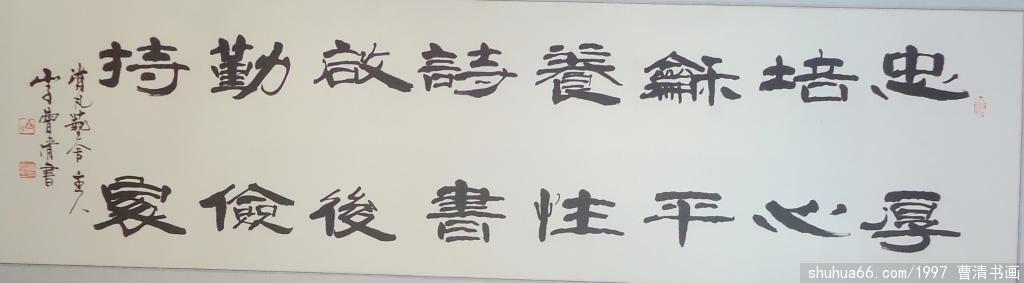 忠厚
培心
龢平
養性
詩書
啟後
勤儉
持家
藝舍主人
曹清書
shuhua66.com/1997 曹清书画